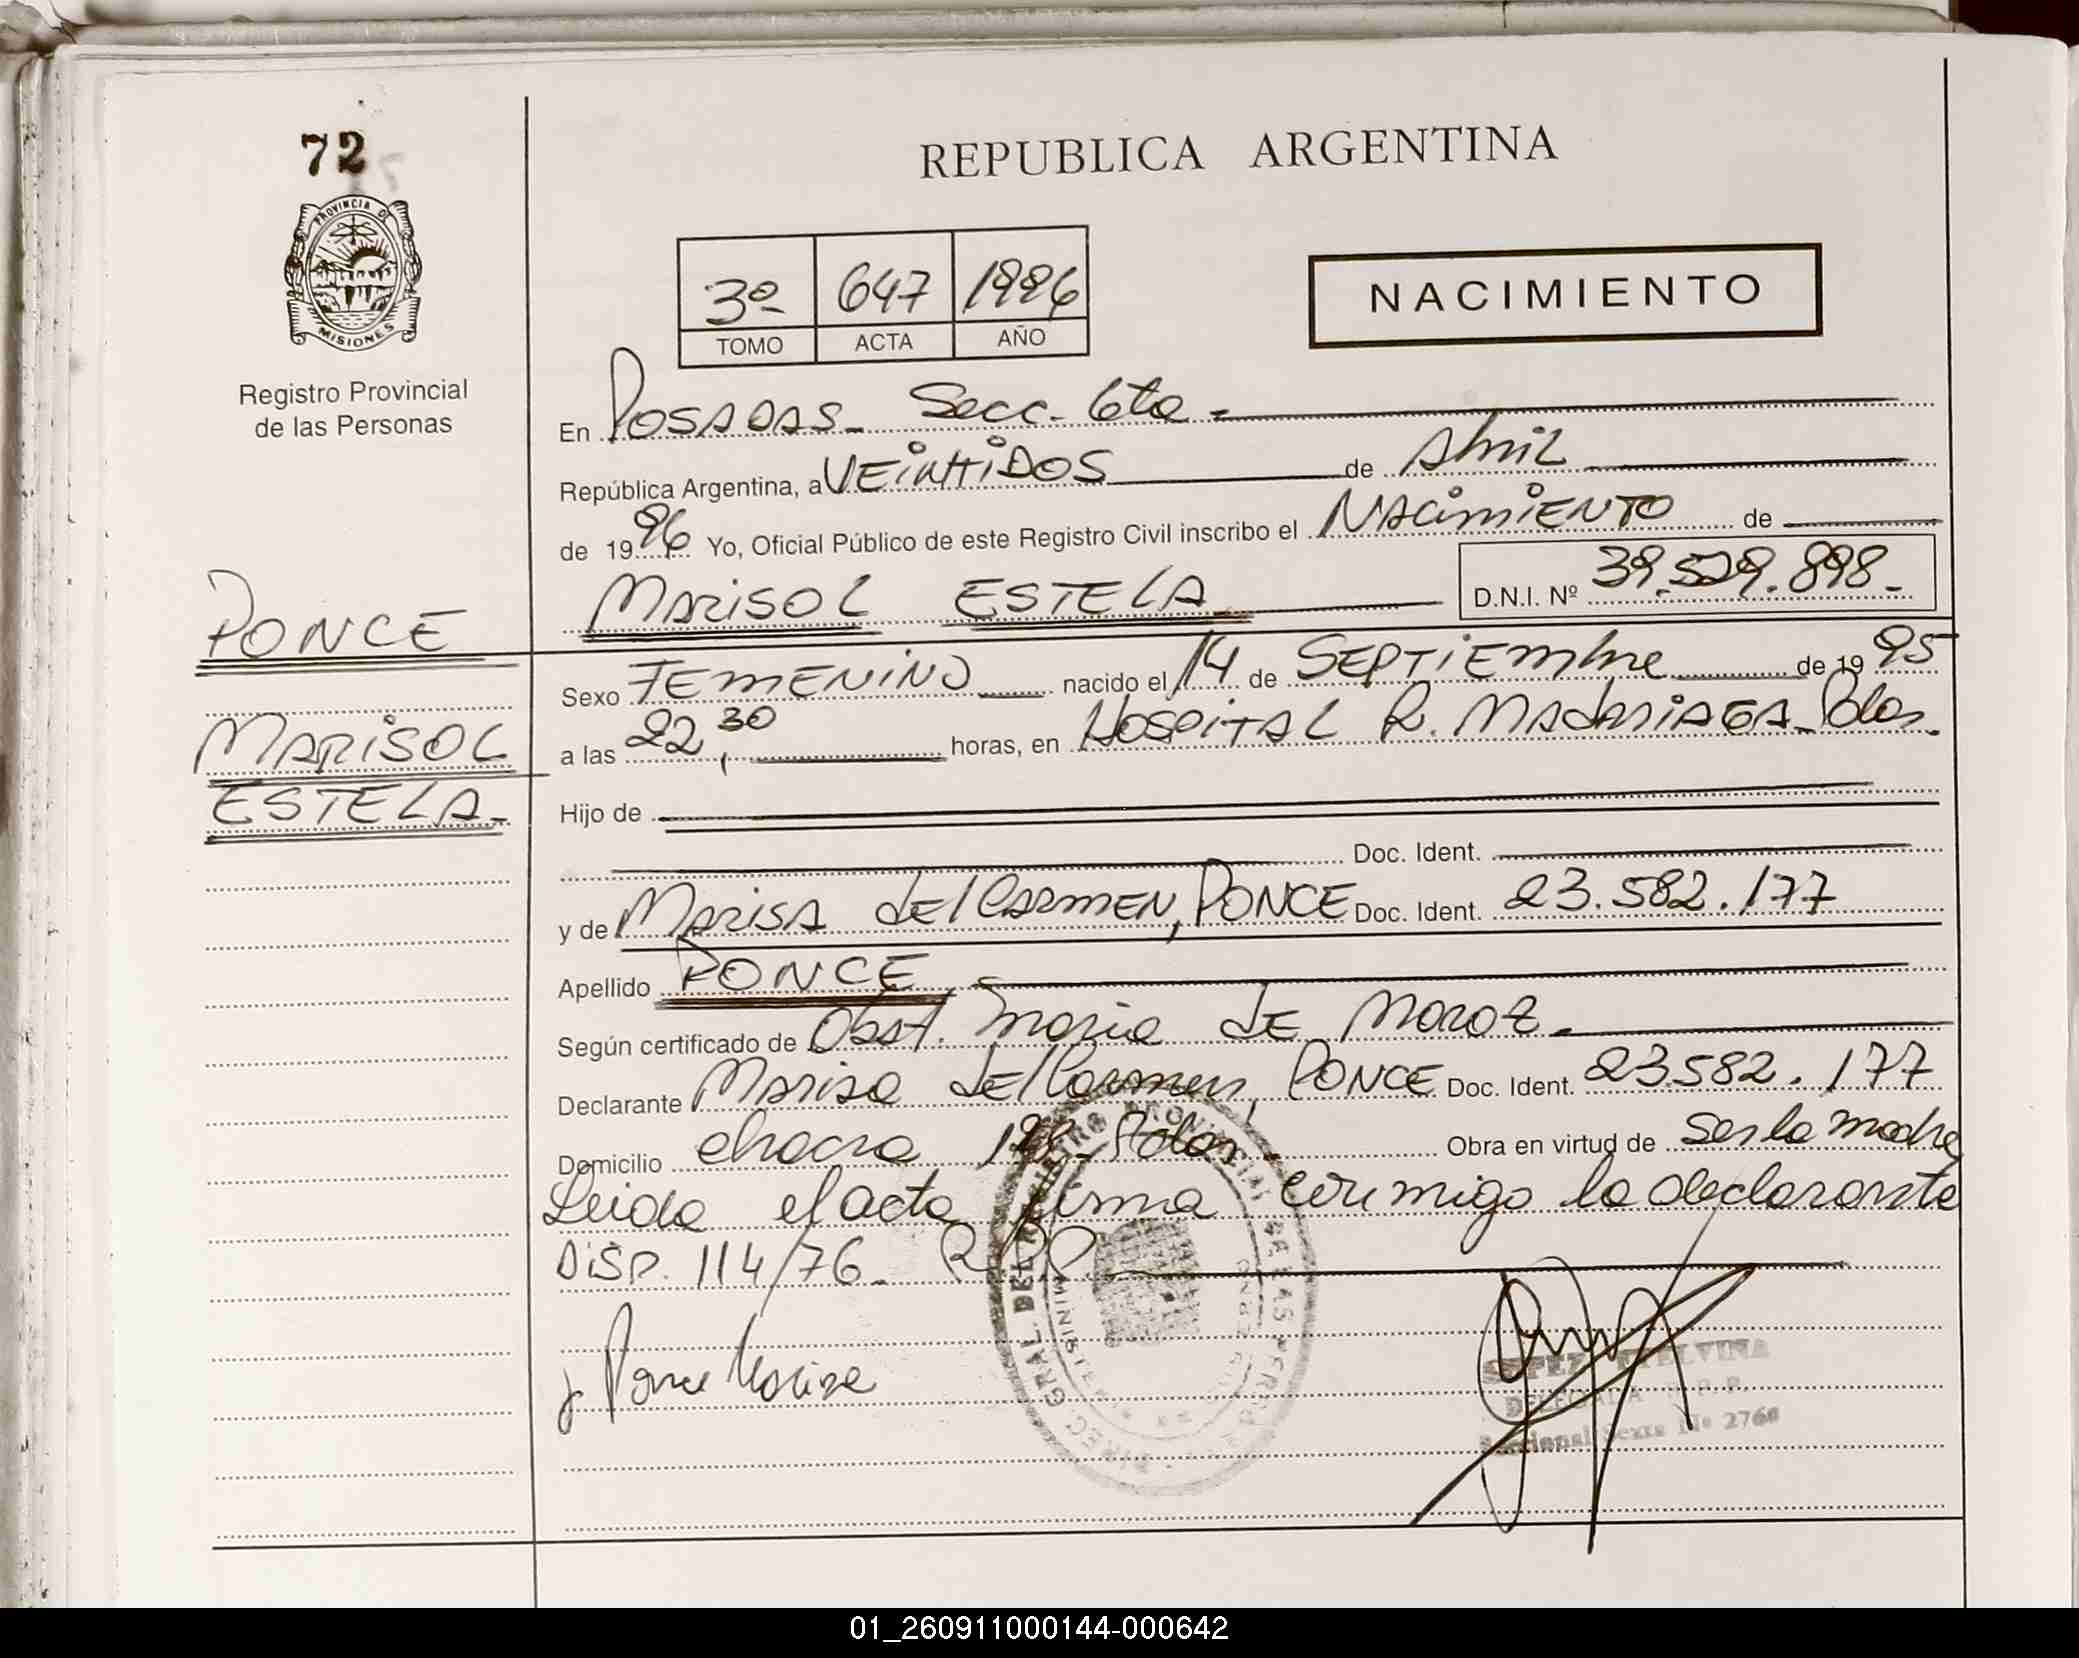 72
PROVINCIA DE
MISIONES
Registro Provincial
de las Personas
REPUBLICA ARGENTINA
3º 647 1996
TOMO ACTA AÑO
NACIMIENTO
En POSADAS - Secc - 6ta -
República Argentina, a VEINTIDOS de Abril
de 1996 Yo, Oficial Público de este Registro Civil inscribo el NACIMIENTO de
MARISOL ESTELA D.N.I. Nº 39.529.898.-
PONCE
MARISOL
ESTELA-
Sexo FEMENINO nacido el 14 de SEPTIEmbre de 1995
a las 22,30 horas, en HOSPITAL R. MADARIAGA - Pdas.
Hijo de
Doc. Ident.
y de MARISA del CARMEN, PONCE Doc. Ident. 23.582.177
Apellido PONCE
Según certificado de Obst. Maria de Moroz -
Declarante Marisa del Carmen, PONCE Doc. Ident. 23.582.177
Domicilio chacra Pdas - Obra en virtud de ser la madre
Leida el acta firma conmigo la declarante
DISP. 114/76 - R.P.P.
Ponce Marisa
DELEGADA R.P.P.
Seccional Sexta Nº 2760
01_260911000144-000642